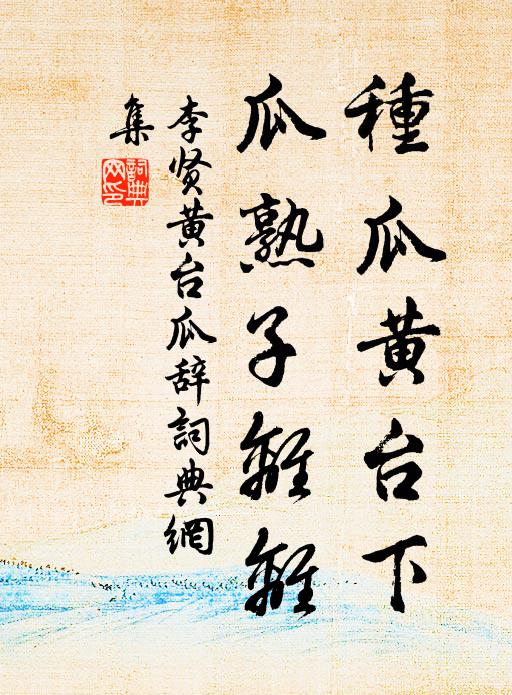 種瓜黄台下
瓜熟子離離
李贤黄台瓜辞詞典網
集
詞典網印